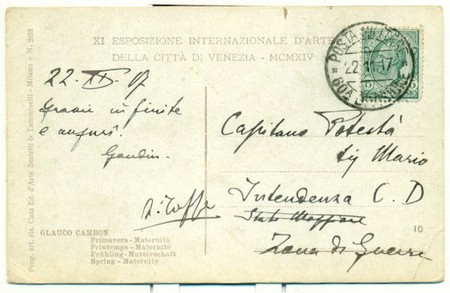 XI ESPOSIZIONE INTERNAZIONALE D'ARTE
DELLA CITTÀ DI VENEZIA - MCMXIV
POSTA MILITARE
22.11.17
60A DIVISIONE
22. XI. 17
Grazie infinite
e auguri
Capitano Potestà
Sig Mario
Intendenza C. D
Stato Maggiore
Zona di Guerra
GLAUCO CAMBON
Primavera - Maternità
Printemps - Maternité
Frühling - Mutterschaft
Spring - Matercity
10
Prop. art. ris. Casa Ed. d'Arte Bestetti & Tumminelli - Milano - N.